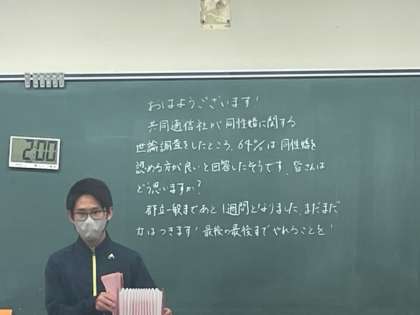 2:00
おはようございます！
共同通信社が同性婚に関する
世論調査をしたところ、64%は同性婚を
認める方が良いと回答したそうです。皆さんは
どう思いますか？
都立一般まであと1週間となりました。まだまだ
力はつきます！最後の最後までやれることを！